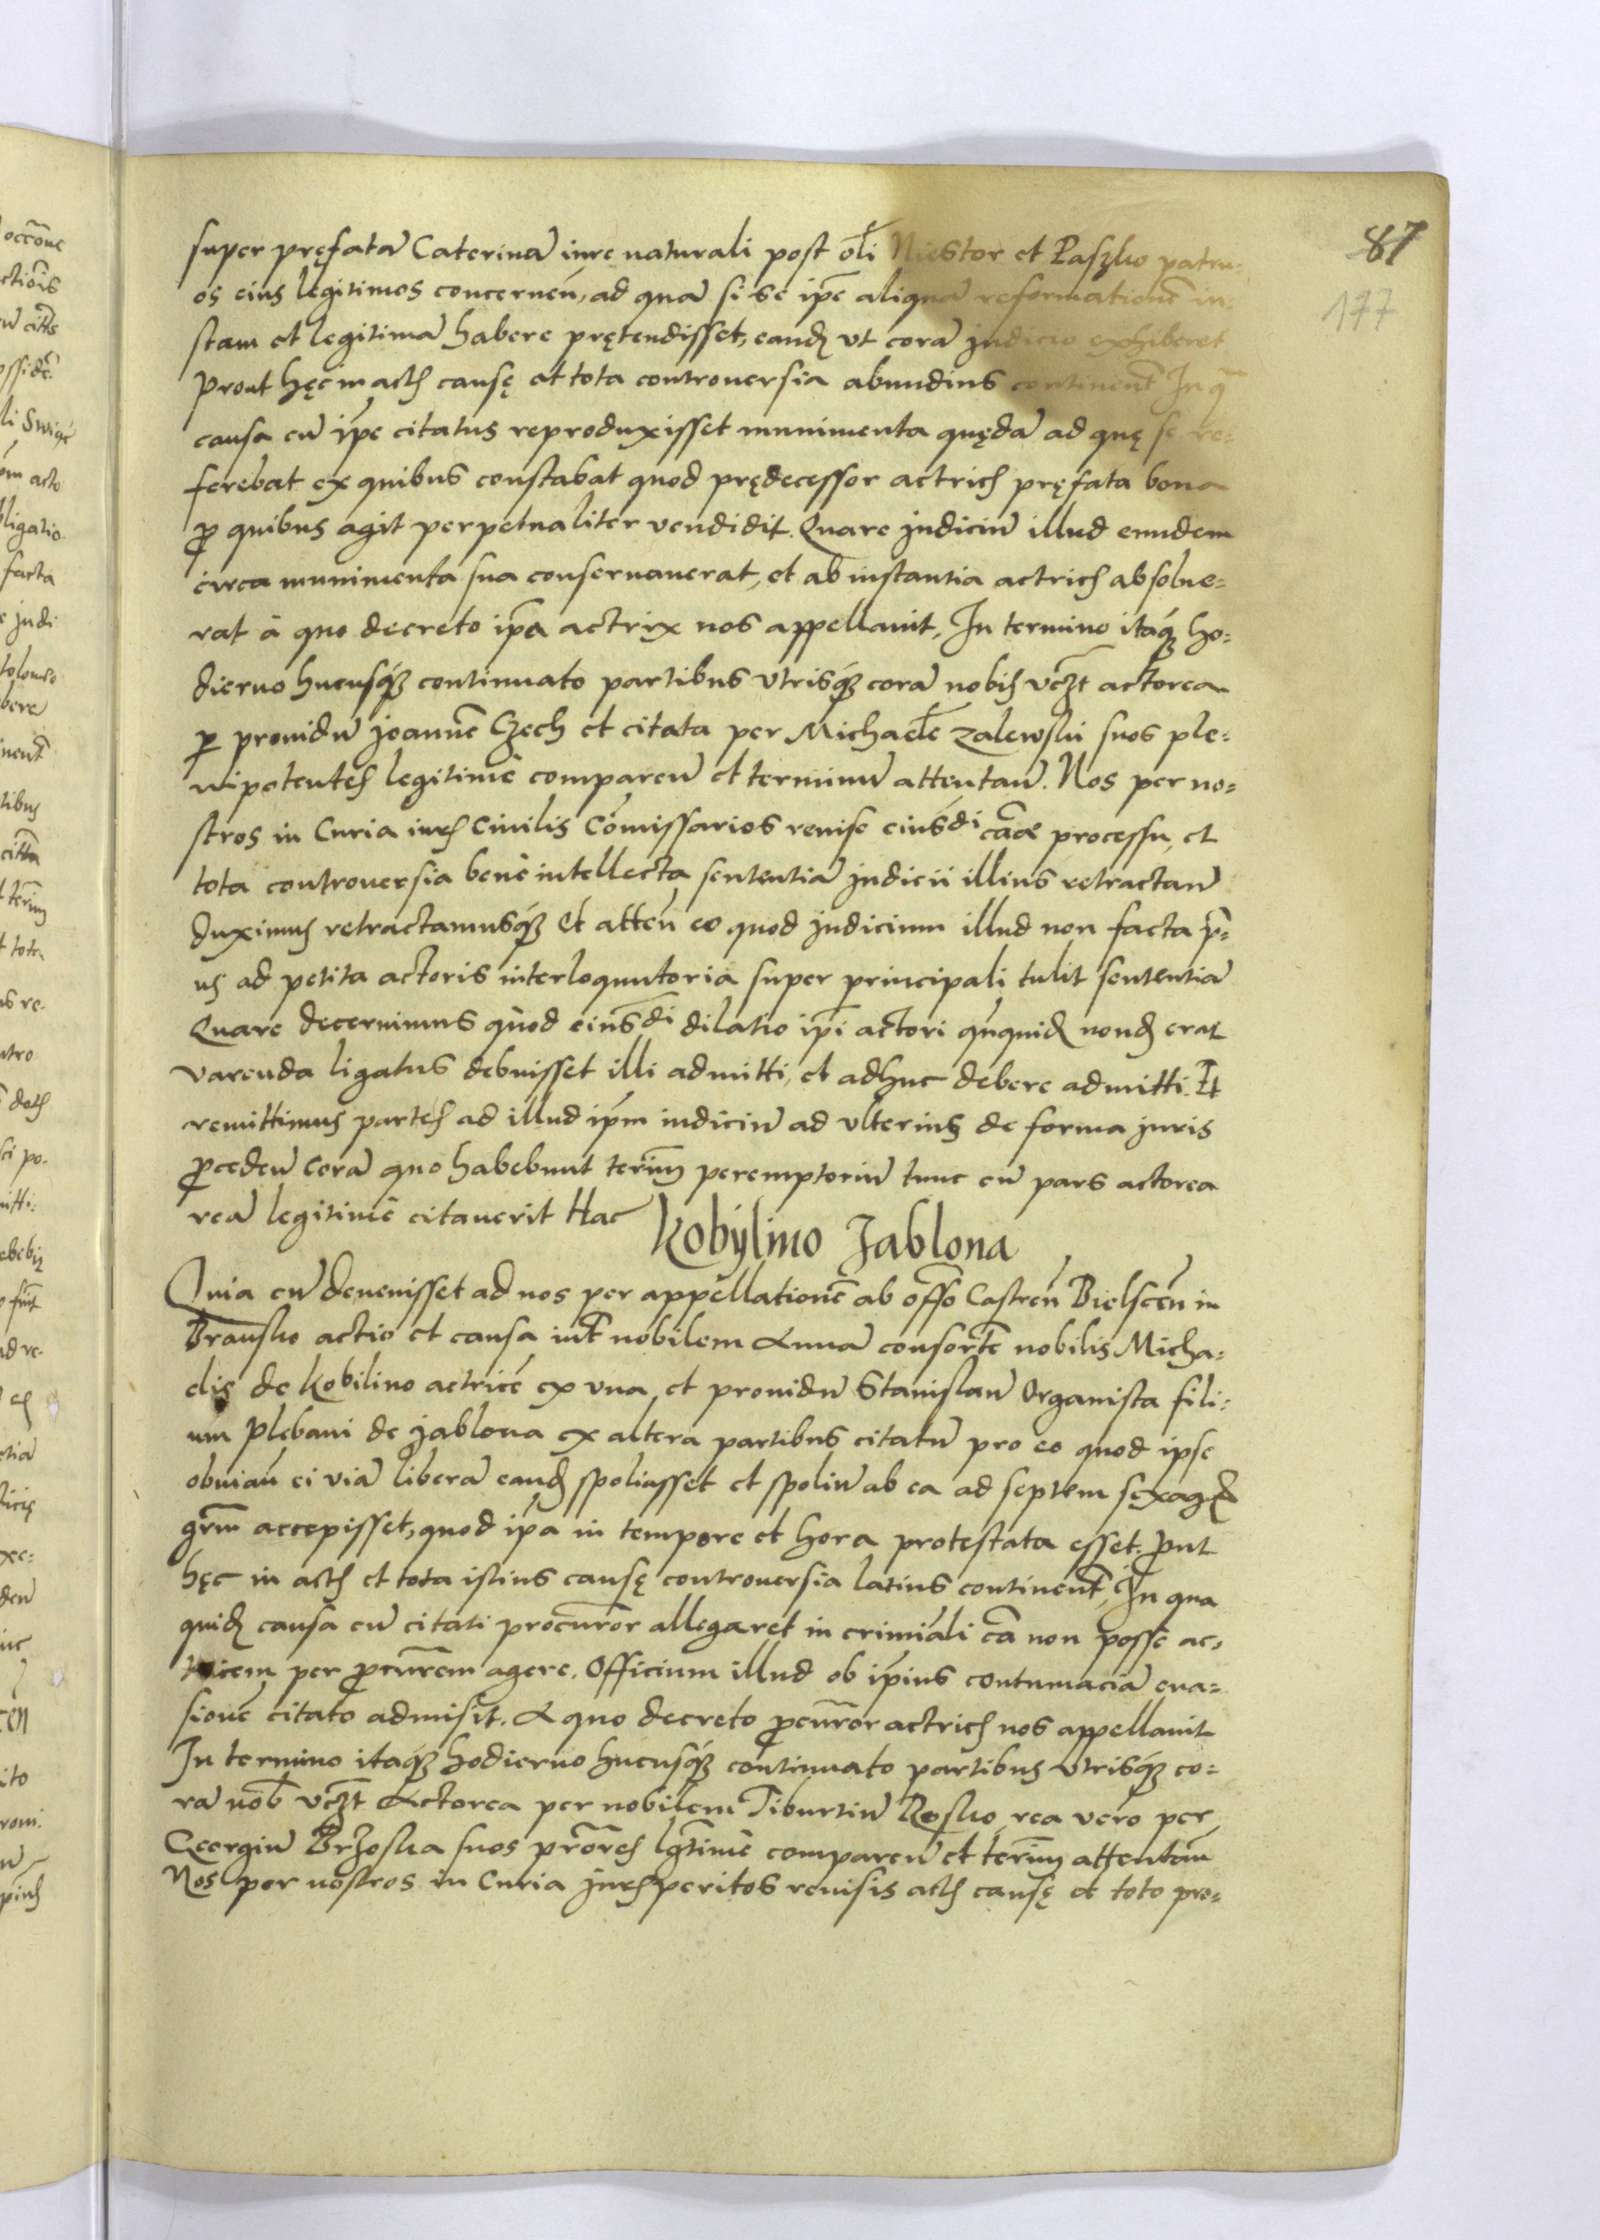 87
177
super pręfatā Caterinā iure naturali post olī Niestor et Paszko patru-
os eius legitimos concernen̄, ad quā si se ip̄e aliquā reformationē iu-
stam et legitimā habere prętendisset, eandē vt corā judicio exhiberet
Prout hęc in actis causę et tota controuersia abundius continent̄ In q̄
causa cū ip̄e citatus reproduxisset munimenta quędā ad quę se re-
ferebat ex quibus constabat quod prędecessor actricis pręfata bona
ꝓ quibus agit perpetualiter vendidit. Quare judiciū illud eundem
circa munimenta sua conseruauerat, et ab instantia actricis absolue-
rat à quo decreto ip̄a actrix nos appellauit, In termino itaqꝫ ho-
dierno hucusqꝫ continuato partibus vtrisqꝫ corā nobis vcꝫt actorea
ꝑ prouidū joannē Czech et citata per Michaelē Zalewski suos ple-
nipotentes legitimè comparen̄ et terminū attentan̄. Nos per no-
stros in Curia iuris Ciuilis Com̄issarios reuiso eiusdi cāæ processu, et
tota controuersia benè intellecta sententiā judicii illius retractan̄
duximus retractamusqꝫ Et atten̄ eo quod judicium illud non facta pri-
us ad petita actoris interloquutoria super principali tulit sententiā
Quare decernimus quod eiusdi dilatio ip̄i actori qn̄quidē nondū erat
varenda ligatus debuisset illi admitti, et adhuc debere admitti. Et
remittimus partes ad illud ip̄m iudiciū ad vlterius de forma juris
ꝓceden̄ Corā quo habebunt termin̄ peremptoriū tunc cū pars actorea
reā legitimè citauerit Hac
Kobÿlino Jablona
Quia cū deuenisset ad nos per appellationē ab offō Castren̄ Bielscen̄ in
Bransko actio et causa int̄ nobilem Annā consortē nobilis Micha-
elis de Kobilino actricē ex vna, et prouidū Stanislaū Organista fili-
um Plebani de jablona ex altera partibus citatū pro eo quod ipse
obuian̄ ei viā liberā eandē spoliasset et spoliū ab ea ad septem sexagꝫ
grm̄ accepisset, quod ip̄a in tempore et hora protestata esset. Prout
hęc in actis et tota istius causę controuersia latius continent̄, In qua
quidē causa cū citati procurōr allegaret in crimināli cā non posse ac-
tricem per ꝓcurem̄ agere. Officium illud ob ip̄ius contumaciā eua-
sionē citato admisit. A quo decreto ꝓcurōr actricis nos appellauit
In termino itaqꝫ hodierno hucusqꝫ continuato partibus vtrisqꝫ co-
rā nob̄ vcꝫt Actorea per nobilem Tiburtiū Rosko, rea vero per
Georgiū Brzoska suos prōres lgt̄imè comparen̄ et termin̄ attentan̄
Nos per nostros in Curia juris peritos reuisis actis causę et toto pro-